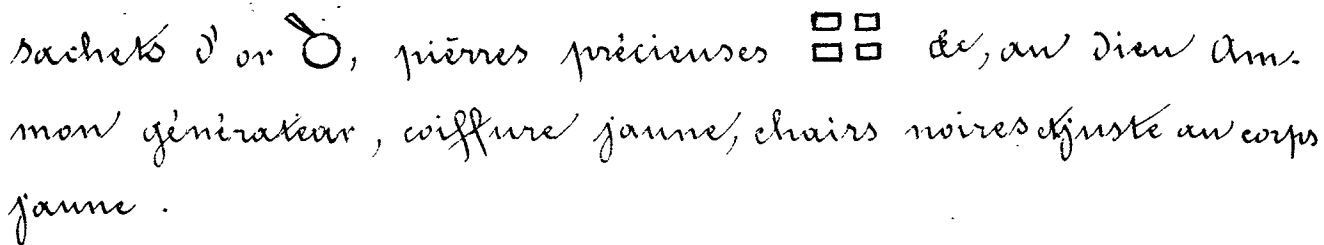 sachets d'or, pierres précieuses &c, au Dieu Am-
mon générateur, coiffure jaune, chairs noires et juste au corps
jaune.